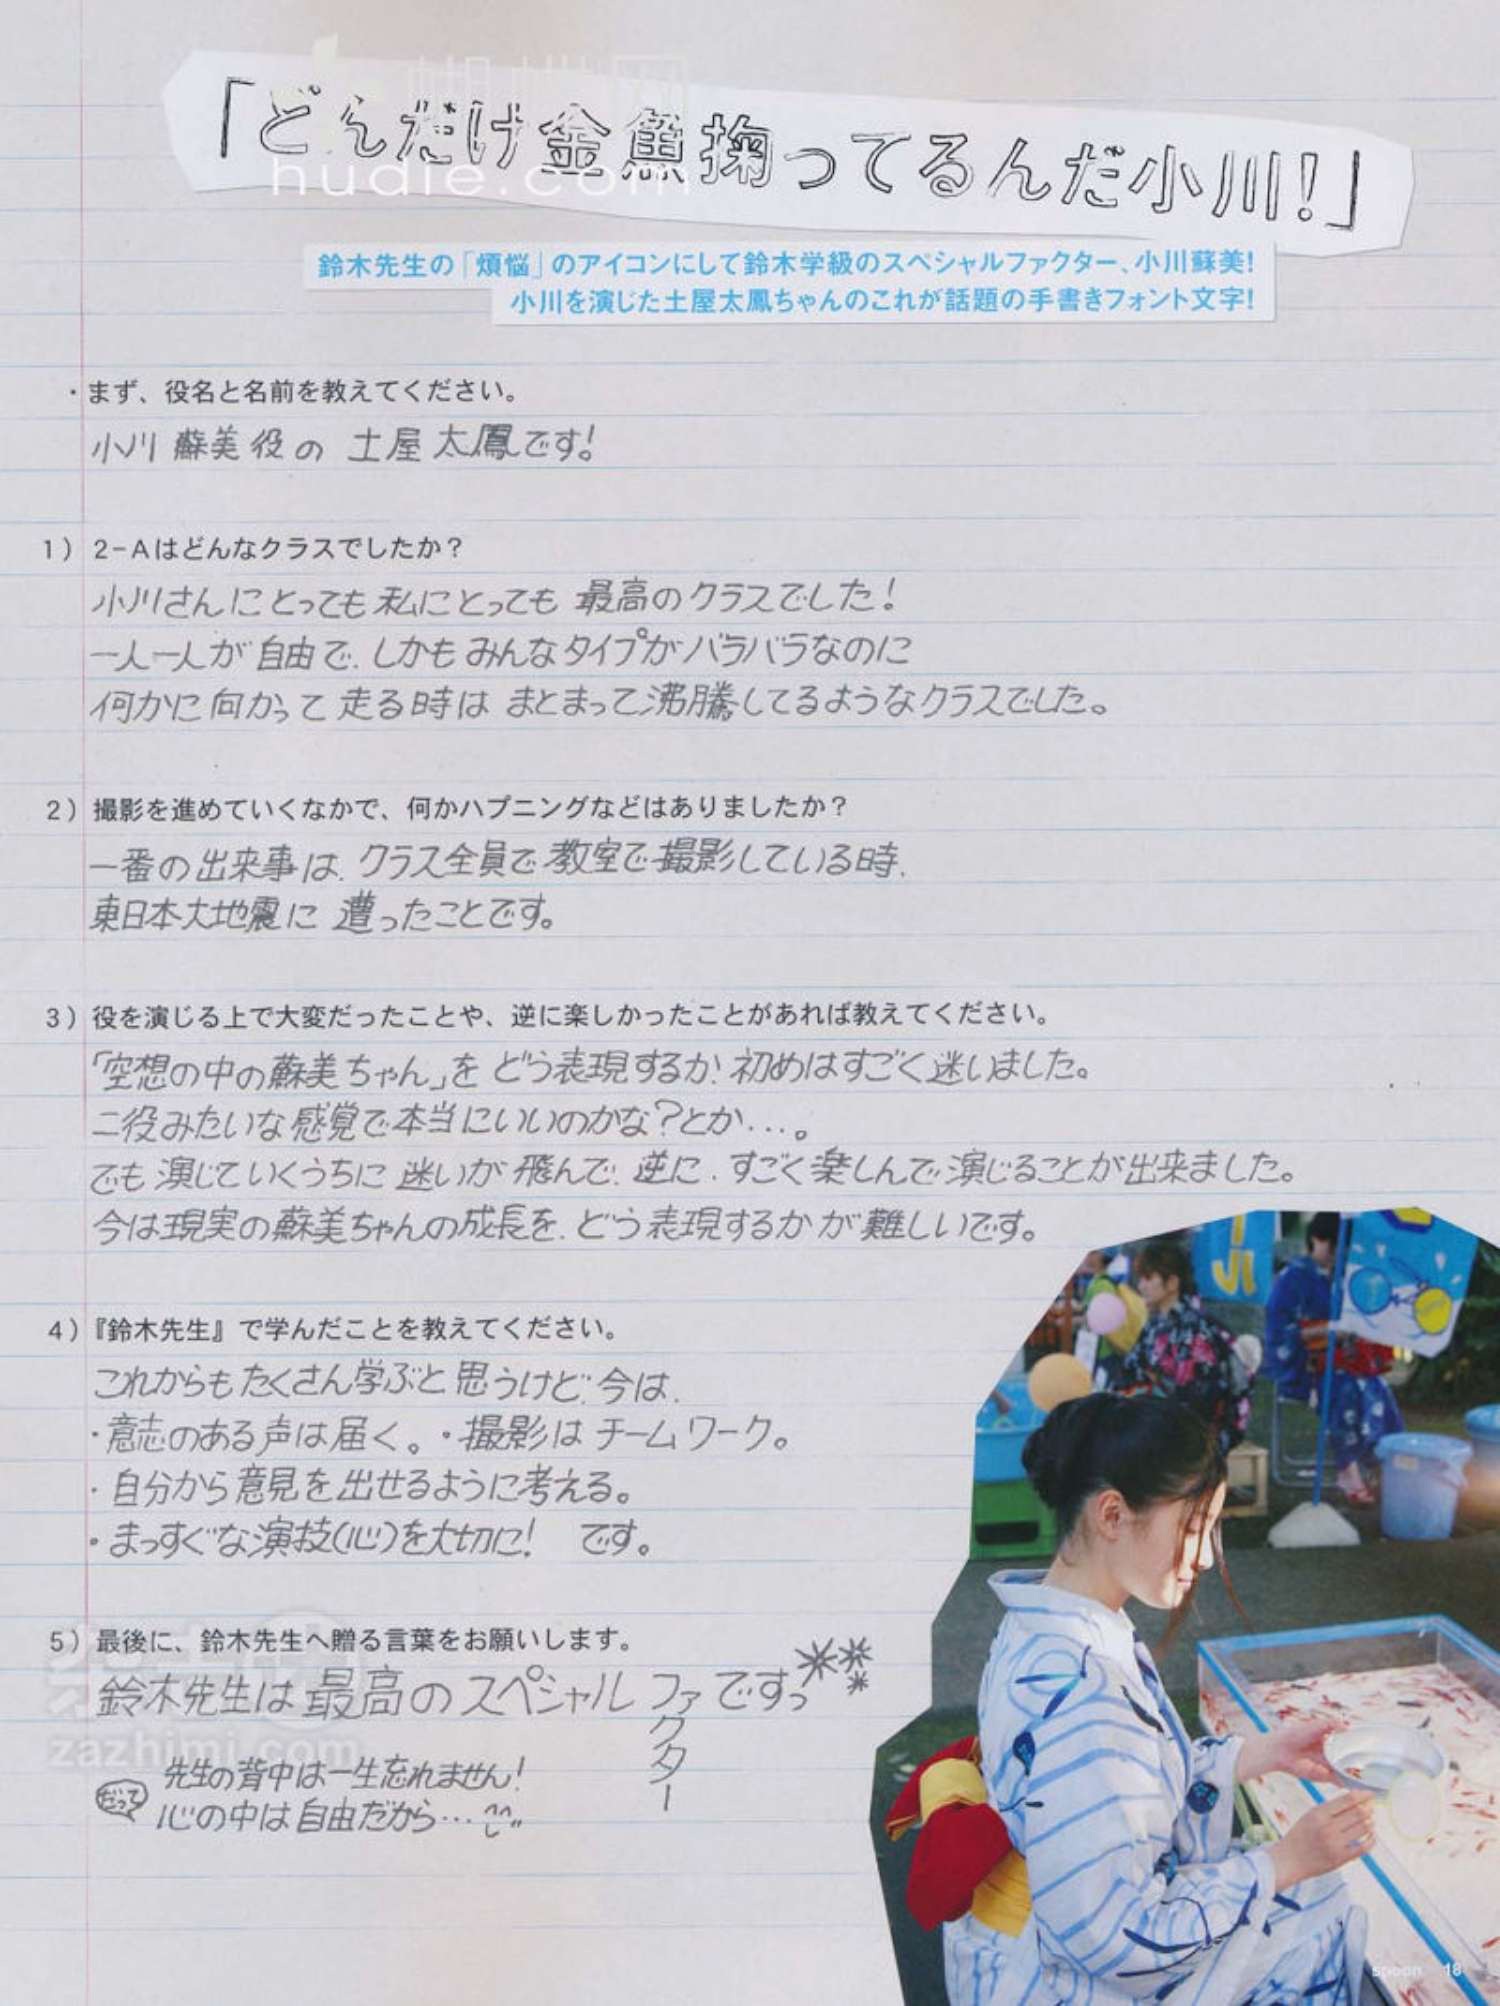 「どんだけ金魚掬ってるんだ小川!」
hudie.com
鈴木先生の「煩悩」のアイコンにして鈴木学級のスペシャルファクター、小川蘇美!
小川を演じた土屋太鳳ちゃんのこれが話題の手書きフォント文字!
・まず、役名と名前を教えてください。
小川 蘇美役の 土屋 太鳳です!
1) 2-Aはどんなクラスでしたか?
小川さんにとっても私にとっても 最高のクラスでした!
一人一人が自由で、しかもみんなタイプがバラバラなのに
何かに向かって走る時は まとまって沸騰してるようなクラスでした。
2) 撮影を進めていくなかで、何かハプニングなどはありましたか?
一番の出来事は、クラス全員で教室で撮影している時、
東日本大地震に 遭ったことです。
3) 役を演じる上で大変だったことや、逆に楽しかったことがあれば教えてください。
「空想の中の蘇美ちゃん」を どう表現するか、初めはすごく迷いました。
二役みたいな感覚で本当にいいのかな?とか…。
でも演じていくうちに 迷いが飛んで、逆に、すごく楽しんで演じることが出来ました。
今は現実の蘇美ちゃんの成長を、どう表現するかが難しいです。
4)『鈴木先生』で学んだことを教えてください。
これからもたくさん学ぶと思うけど、今は、
・意志のある声は届く。・撮影はチームワーク。
・自分から意見を出せるように考える。
・まっすぐな演技(心)を大切に! です。
5) 最後に、鈴木先生へ贈る言葉をお願いします。
鈴木先生は最高のスペシャルファクターですっ
zazhimi.com
だって
先生の背中は一生忘れません!
心の中は自由だから…
spoon 18